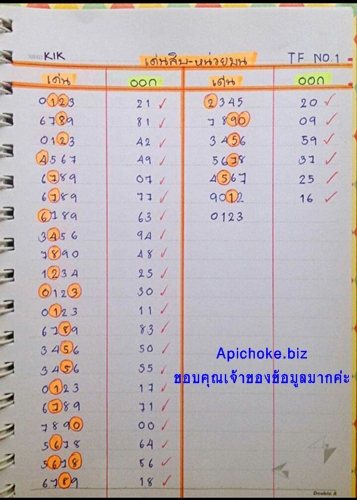 KIK เด่นสิบ-หน่วยบน TF NO.1
เด่น ออก เด่น ออก
0123 21 ✓ 2345 20 ✓
6789 81 ✓ 7890 09 ✓
0123 42 ✓ 3456 59 ✓
4567 49 ✓ 5678 37 ✓
6789 07 ✓ 4567 25 ✓
6789 77 ✓ 9012 16 ✓
6789 63 ✓ 0123
3456 94 ✓
7890 48 ✓
1234 25 ✓
0123 30 ✓
0123 11 ✓
6789 83 ✓
3456 50 ✓
3456 55 ✓
0123 17 ✓
6789 71 ✓
7890 00 ✓
5678 64 ✓
5678 56 ✓
6789 18 ✓
Apichoke.biz
ขอบคุณเจ้าของข้อมูลมากค่ะ
Double A